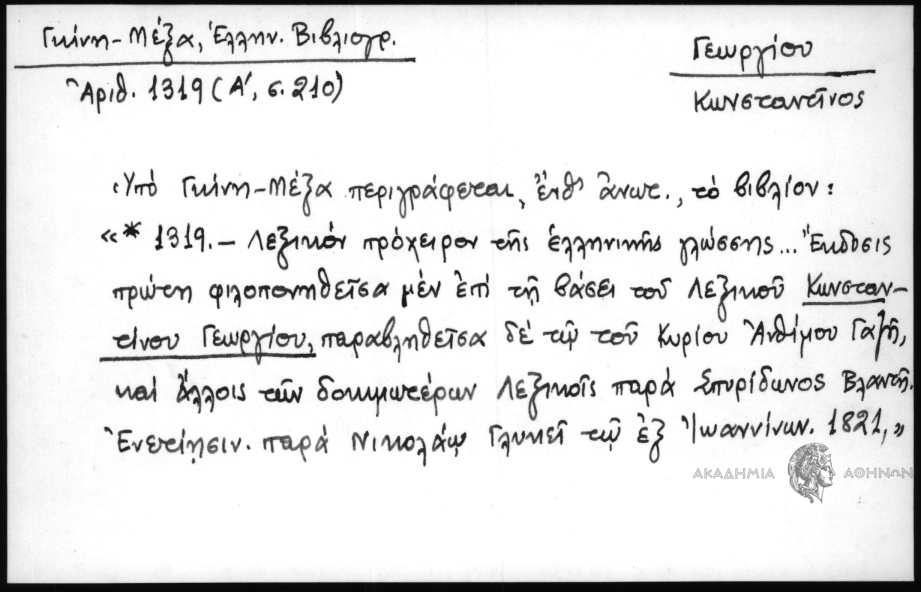 Γκίνη-Μέξα, Ἑλλην. Βιβλιογρ.
Ἀριθ. 1319 (Α', σ. 210)
Γεωργίου
Κωνσταντῖνος
Ὑπό Γκίνη-Μέξα περιγράφεται, ἔνθ' ἄνωτ., τό βιβλίον:
«* 1319.- Λεξικόν πρόχειρον τῆς ἑλληνικῆς γλώσσης... Ἔκδοσις
πρώτη φιλοπονηθεῖσα μέν ἐπί τῇ βάσει τοῦ Λεξικοῦ Κωνσταν-
τίνου Γεωργίου, παραβληθεῖσα δέ τῷ τοῦ Κυρίου Ἀνθίμου Γαζῆ,
καί ἄλλοις τῶν δοκιμωτέρων Λεξικοῖς παρά Σπυρίδωνος Βλαντῆ.
Ἐνετίῃσιν. παρά Νικολάῳ Γλυκεῖ τῷ ἐξ Ἰωαννίνων. 1821,»
ΑΚΑΔΗΜΙΑ ΑΘΗΝΩΝ